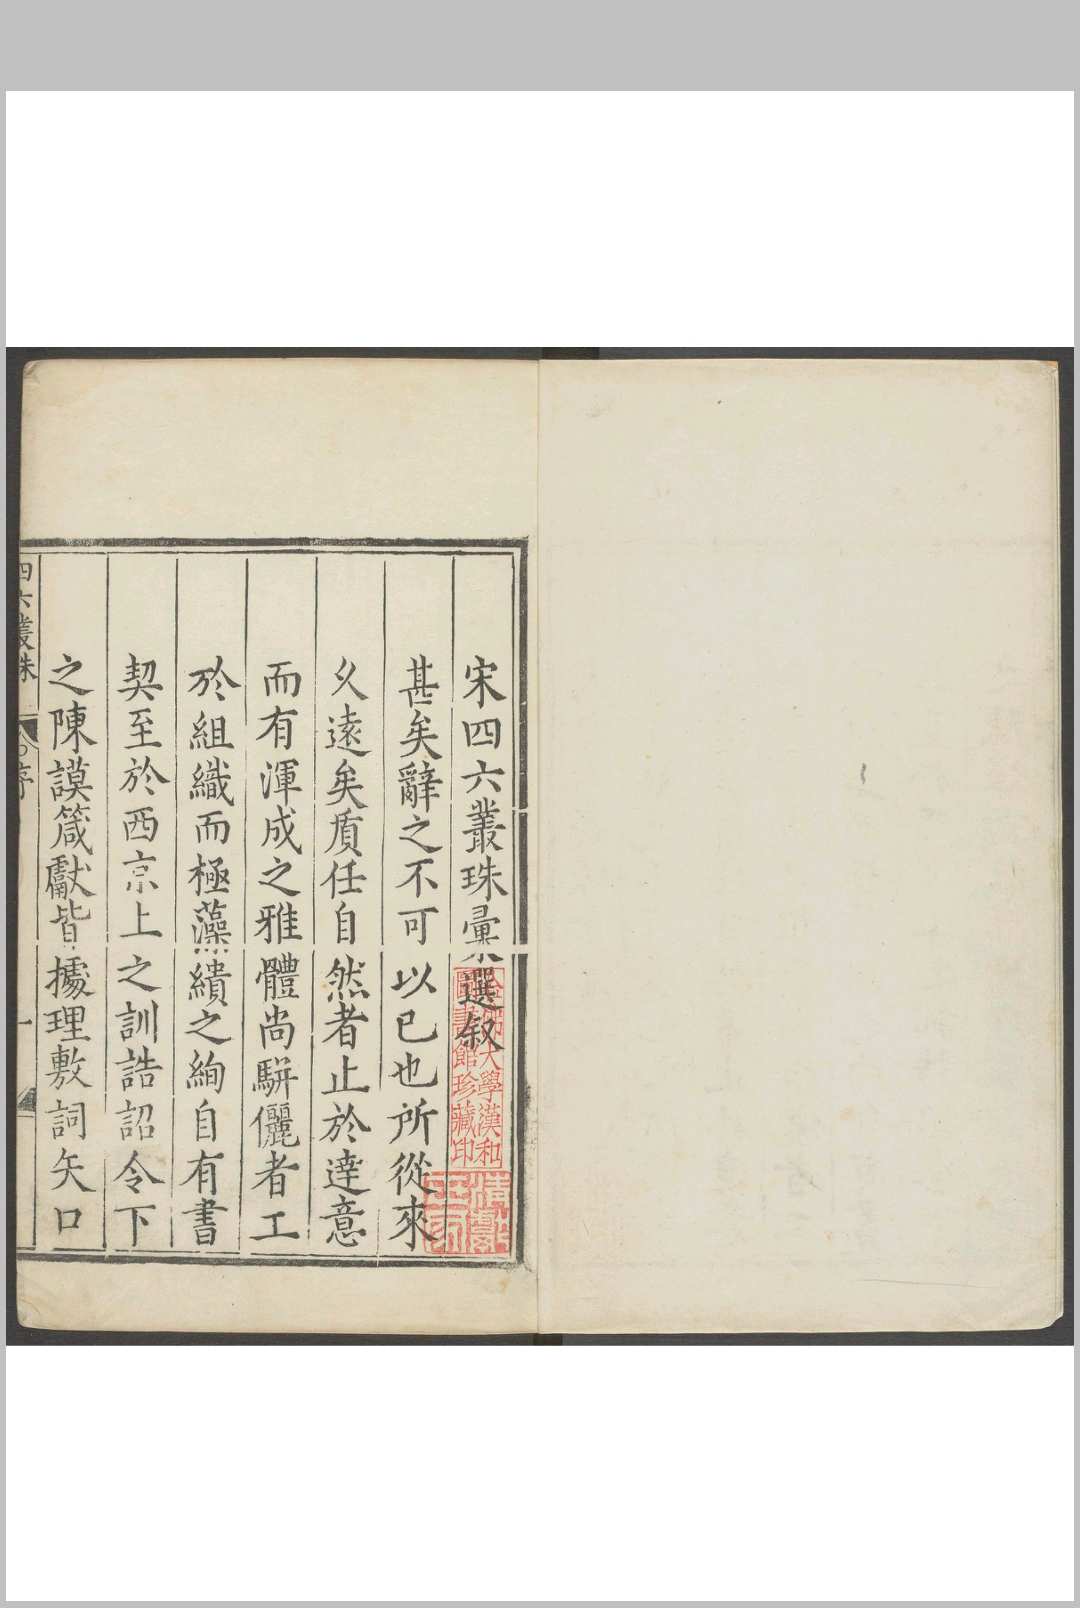 宋四六叢珠彙選叙
甚矣辭之不可以已也所從來
久遠矣質任自然者止於達意
而有渾成之雅體尚駢儷者工
於組織而極藻繢之絢自有書
契至於西京上之訓誥詔令下
之陳謨箴獻皆據理敷詞矢口
四六叢珠
序
一
哈佛大學漢和
圖書館珍藏印